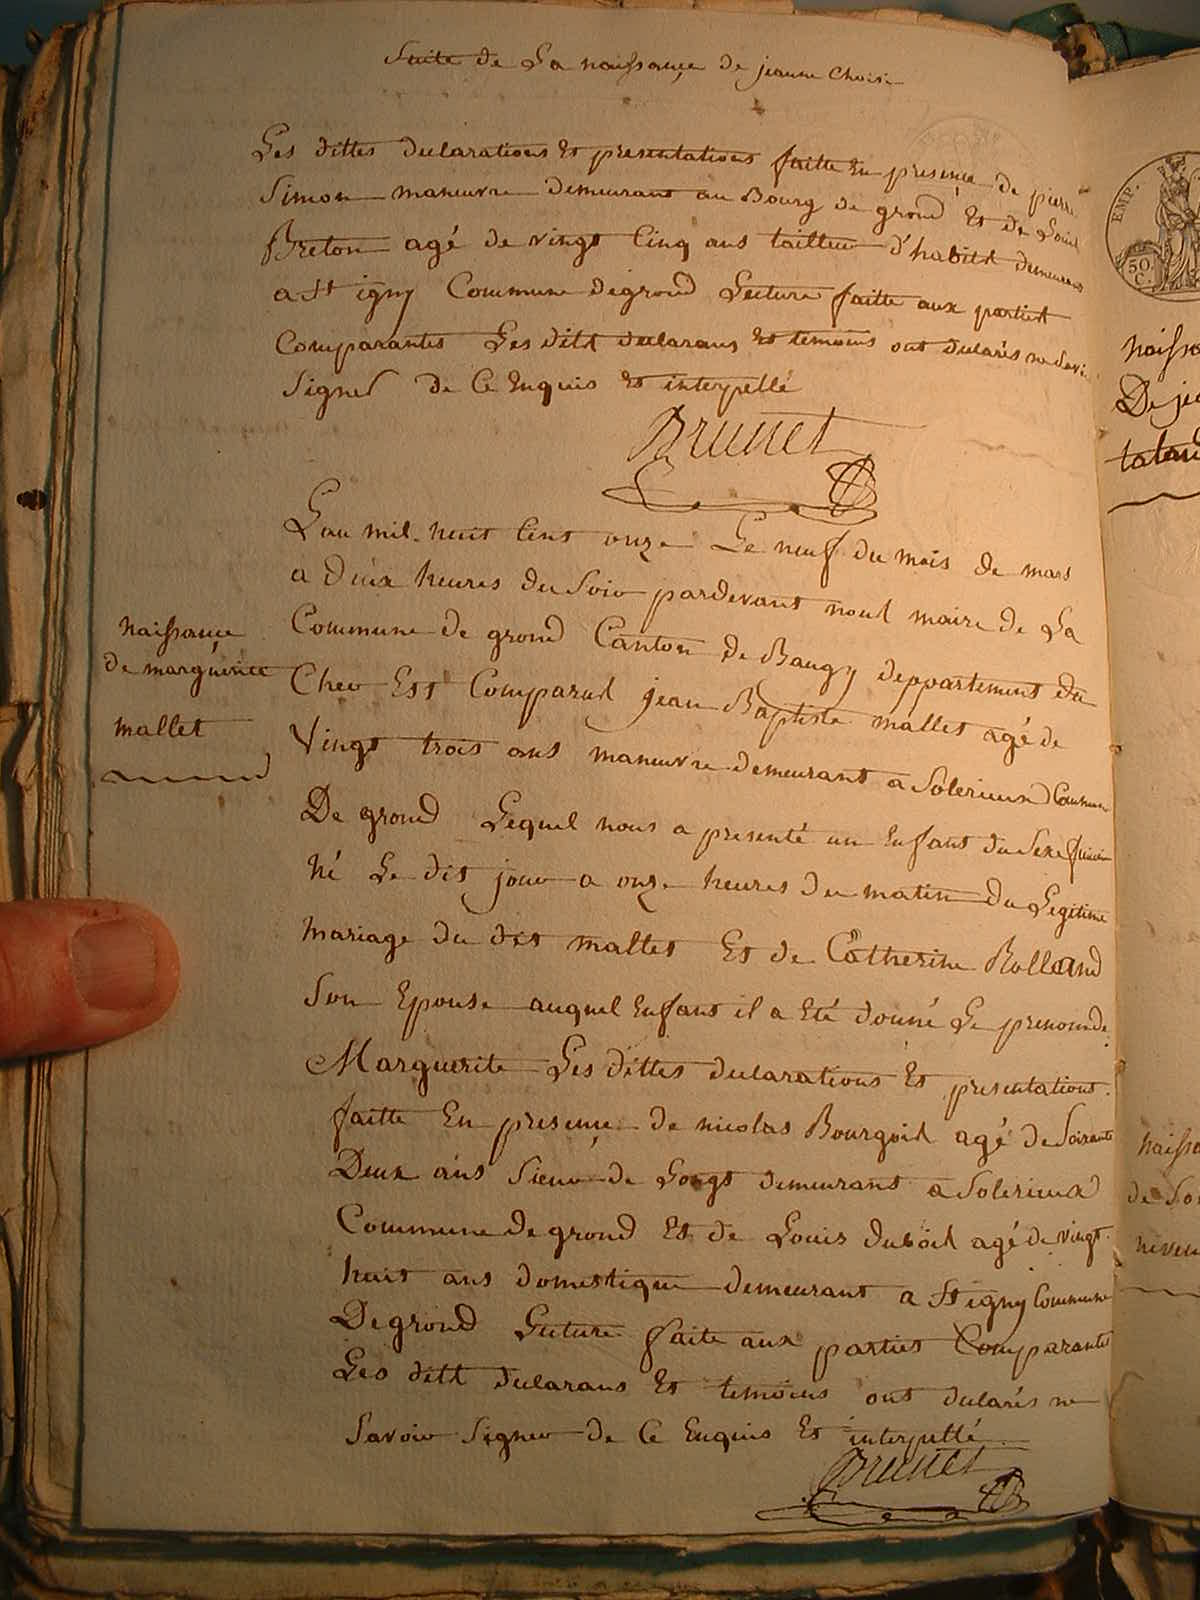 Suite de La naissance de jeanne Choisi
Les dittes declarations Et presentations faitte En presence de pierre
Simon maneuvre demeurant au Bourg de grond Et de Louis
Breton agé de vingt Cinq ans tailleur d'habist demeurant
a St igny Commune degrond Lecture faitte aux partiest
Comparantes Les dits declarans Et temoins ont declarés ne Savoir
Signer de Ce Enquis Et interpellé
Brunet
L'an mil huit Cent onze Le neuf du mois de mars
a deux heures du Soir pardevant nous maire de La
Commune de grond Canton de Baugy deppartement du
Cher Est Comparus jean Baptiste mallet agé de
Vingt trois ans maneuvre demeurant a Solerieux Commune
De grond Lequel nous a presenté un Enfant du Sexe feminin
Né Le dit jour a onze heures du matin du Legitime
mariage du dit mallet Et de Catherine Rolland
Son Epouse auquel Enfant il a Eté donné Le prenom de
Marguerite Les dittes declarations Et presentations
faitte En presence de nicolas Bourgois agé de Soixante
Deux ans Sieur de Longt demeurant a Solerieux
Commune de grond Et de Louis dubois agé de vingt
huit ans domestique demeurant a St igny Commune
De grond Lecture faite aux parties Comparantes
Les dits declarans Et temoins ont declarés ne
Savoir Signer de Ce Enquis Et interpellé
Brunet
naissance
de marguerite
mallet
EMP.
50
C.
naissa
De je
naissa
de So